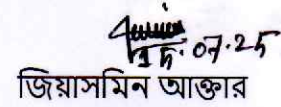 15.07.25
জিয়াসমিন আক্তার